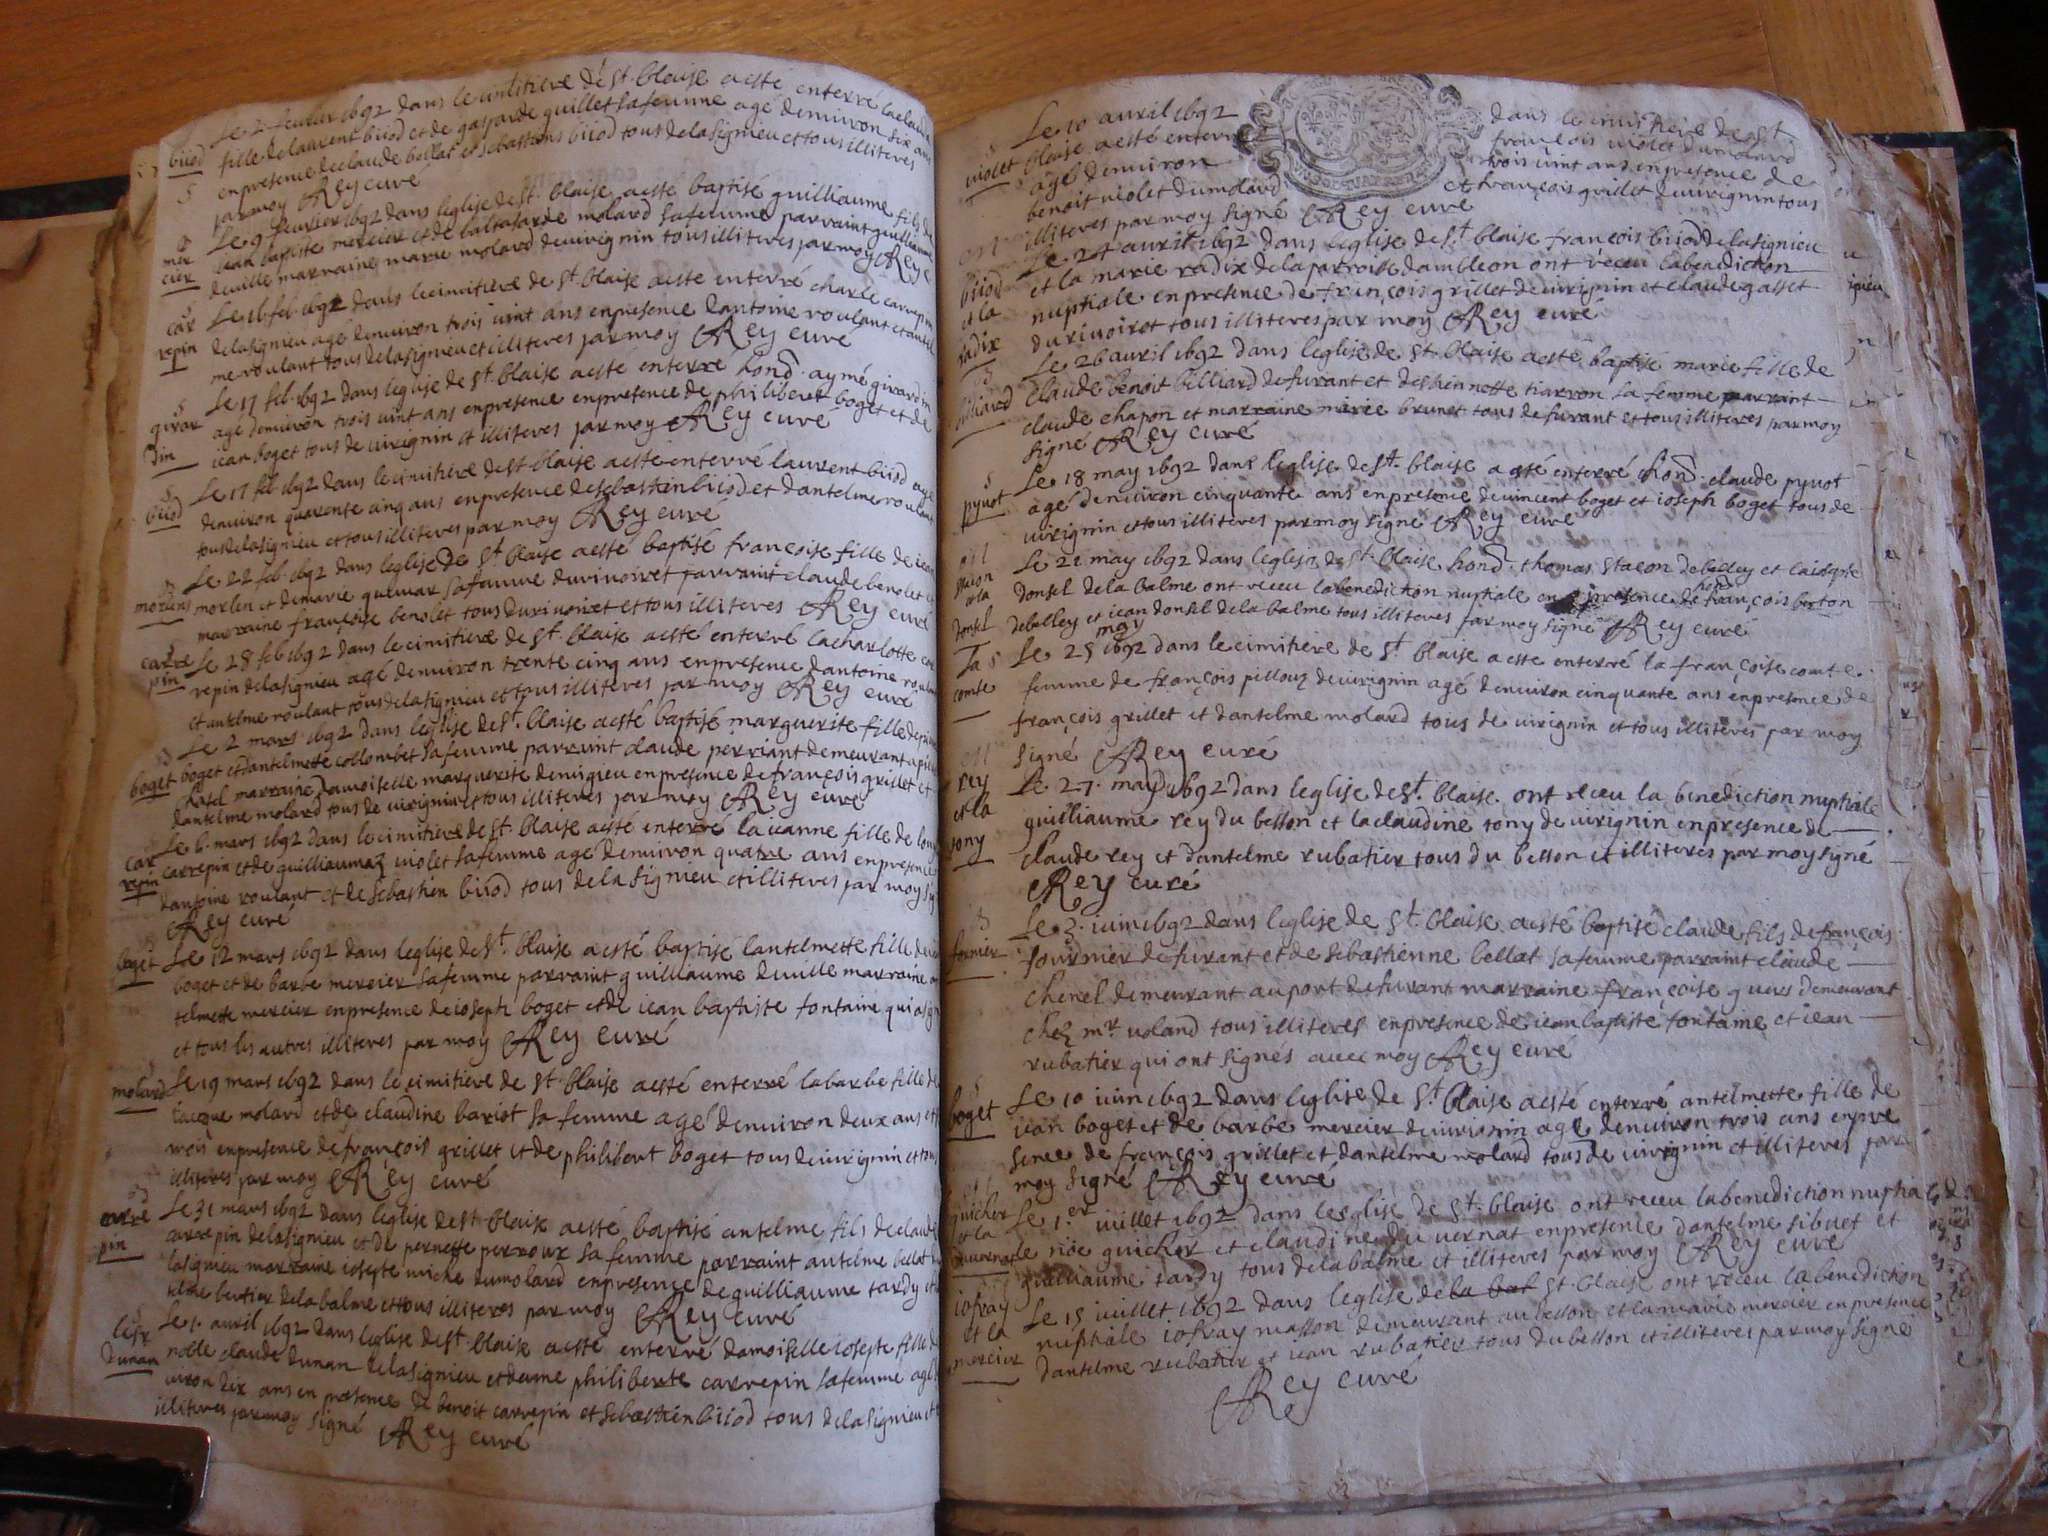 Le 2 feburier 1692 dans le cimitiere de st. blaise a esté enterré la claudine
biiod
fille de laurent biiod et de gasparde guillet sa femme agé denuiron six ans
en presence de claude bellat et sebastiens biiod tous de lasignieu et tous illiteres
par moy Rey curé
Le 9 feurier 1692 dans leglise de st. blaise a esté baptisé guilliaume fils de
mercier
iean baptiste mercier et de baltasarde molard sa femme parraint guilliaume
deuille marraine marie molard de uirignin tous illiteres par moy Rey
Le 16 feb. 1692 dans le cimitiere de st. blaise a esté enterré charle carrepin
carrepin
de lasignieu agé denuiron trois uint ans en presence dantoine roulant et antel
me roulant tous de lasignieu et illiteres par moy Rey curé
Le 17 feb. 1692 dans leglise de st. blaise a esté enterré hond. aymé girardin
girardin
agé denuiron trois uint ans en presence en presence de philibert boget et de
iean boget tous de uirignin et illiteres par moy Rey curé
Le 17 feb 1692 dans le cimitiere de st blaise a esté enterré laurent biiod agé
biiod
denuiron quarente cinq ans en presence de sebastien biiod et dantelme roulant
tous de lasignieu et tous illiteres par moy Rey curé
Le 22 feb. 1692 dans leglise de st. blaise a esté baptisé françoise fille de iean
morlens
morlen et de marie sa femme du riuoiret parraint claude benolet et
marraine françoise benolet tous du riuoiret et tous illiteres Rey curé
Le 28 feb 1692 dans le cimitiere de st. blaise a esté enterré la charlotte car
carrepin
repin de lasignieu agé denuiron trente cinq ans en presence dantoine roulant
et antelme roulant tous de lasignieu et tous illiteres par moy Rey curé
Le 2 mars 1692 dans leglise de st. blaise a esté baptisé marguerite fille de
boget
boget et dantelmette collombet sa femme parraint claude perriant demeurant a pierre
chatel marraine damoiselle marguerite demigieu en presence de françois grillet et
dantelme molard tous de uirignin et tous illiteres par moy Rey curé
Le 6 mars 1692 dans le cimitiere de st. blaise a esté enterré la ieanne fille de
carrepin
carrepin et de guilliaumaz uiolet sa femme agé denuiron quatre ans en presence
dantoine roulant et de sebastien biiod tous de lasignieu et illiteres par moy
Rey curé
Le 12 mars 1692 dans leglise de st. blaise a esté baptise lantelmette fille de
boget
boget et de barbe mercier sa femme parraint guilliaume deuille marraine an
telmette mercier en presence de ioseph boget et de iean baptiste fontaine qui a signé
et tous les autres illiteres par moy Rey curé
Le 19 mars 1692 dans le cimitiere de st blaise a esté enterré la barbe fille de
molard
iacque molard et de claudine bariot sa femme agé denuiron deux ans et
mois en presence de françois grillet et de philibert boget tous de uirignin et tous
illiteres par moy Rey curé
Le 31 mars 1692 dans leglise de st. blaise a esté baptisé antelme fils de claude
carrepin
carrepin de lasignieu et de pernette perroux sa femme parraint antelme bellat
lasignieu marraine iosepte miche du molard en presence de guilliaume tardy et
bertier de la balme et tous illiteres par moy Rey curé
Le 1. auril 1692 dans leglise de st. blaise a esté enterré damoiselle iosepte fille de
dunan
noble claude dunan de lasignieu et dame philiberte carrepin sa femme agé
uiron dix ans en presence de benoit carrepin et sebastien biiod tous de lasignieu et
illiteres par moy signé Rey curé
Le 10 auril 1692 dans le cimitiere de st
uiolet
blaise a esté enterré françois uiolet du molard
agé denuiron trois uint ans en presence de
benoit uiolet du molard et françois grillet de uirignin tous
illiteres par moy signé Rey curé
Le 24 auril 1692 dans leglise de st. blaise françois biiod de lasignieu
biiod
et la
radix
et la marie radix de la parroisse dambleon ont receu la benediction
nuptiale en presence de françois grillet de uirignin et claude gasset
du riuoiret tous illiteres par moy Rey curé
Le 26 auril 1692 dans leglise de st. blaise a esté baptisé marie fille de
billiard
claude benoit billiard de furant et destiennette tiarron sa femme parraint
claude chapon et marraine marie brunet tous de furant et tous illiteres par moy
signé Rey curé
Le 18 may 1692 dans leglise de st. blaise a esté enterré hond. claude pyuot
pyuot
agé denuiron cinquante ans en presence de uincent boget et ioseph boget tous de
uirignin et tous illiteres par moy signé Rey curé
Le 21 may 1692 dans leglise de st. blaise hond. thomas stacon de belley et la iosepte
et la
donsel
donsel de la balme ont receu la benediction nuptiale en presence de hond françois berton
de belley et iean donsel de la balme tous illiteres par moy signé Rey curé
Le 25 may 1692 dans le cimitiere de st. blaise a esté enterré la françoise comte
la
comte
femme de françois pillouz de uirignin agé denuiron cinquante ans en presence de
françois grillet et dantelme molard tous de uirignin et tous illiteres par moy
signé Rey curé
Le 27. may 1692 dans leglise de st. blaise. ont receu la benediction nuptiale
rey
et la
tony
guilliaume rey du besson et la claudine tony de uirignin en presence de
claude rey et dantelme rubatier tous du besson et illiteres par moy signé
Rey curé
Le 3. iuin 1692 dans leglise de st. blaise a esté baptisé claude fils de françois
fournier
fournier de furant et de sebastienne bellat sa femme parraint claude
chenel demeurant au port de furant marraine françoise guers demeurant
chez mr. uoland tous illiteres en presence de iean baptiste fontaine et iean
rubatier qui ont signés auec moy Rey curé
Le 10 iuin 1692 dans leglise de st. blaise a esté enterré antelmette fille de
boget
iean boget et de barbe mercier de uirignin agé denuiron trois ans en pre
sence de françois grillet et dantelme molard tous de uirignin et illiteres par
moy signé Rey curé
Le 1.er iuillet 1692 dans leglise de st. blaise ont receu la benediction nuptia
guicher
et la
duuernat
le noe guicher et claudine du uernat en presence dantelme sibuet et
guilliaume tardy tous de la balme et illiteres par moy Rey curé
Le 15 iuillet 1692 dans leglise de la bal st. blaise ont receu la benediction
iofray
et la
mercier
nuptiale iofray masson demeurant au besson et la marie mercier en presence
dantelme rubatier et iean rubatier tous du besson et illiteres par moy signé
Rey curé